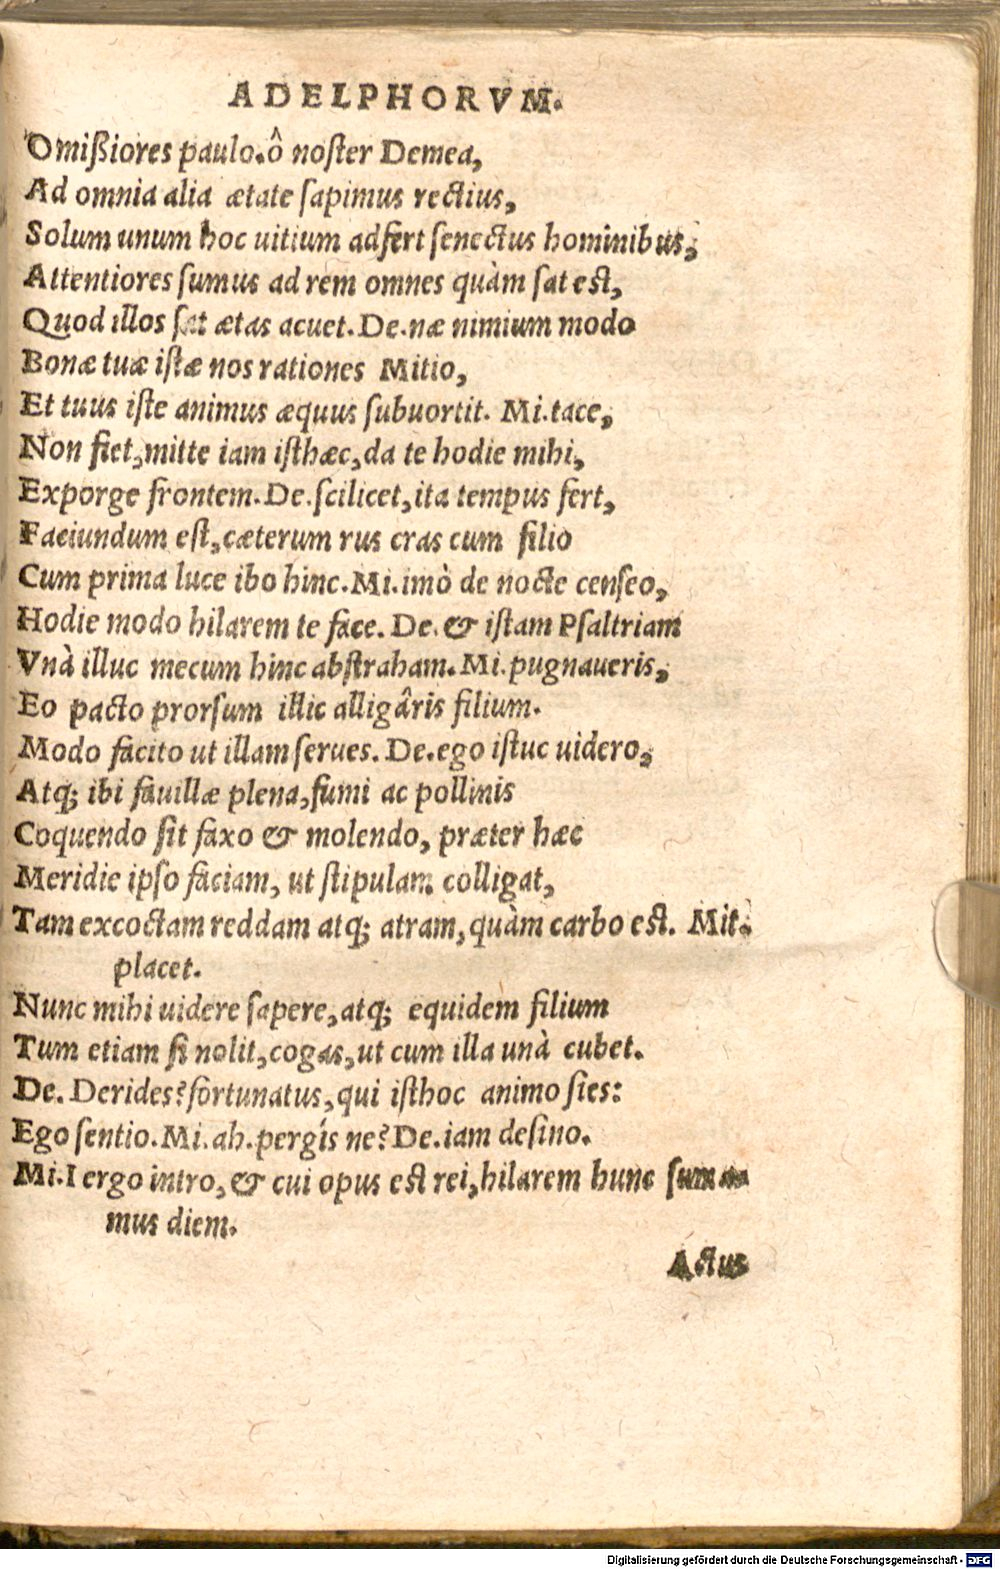 ADELPHORVM.
Omißiores paulo.ô noſter Demea,
Ad omnia alia ætate ſapimus rectius,
Solum unum hoc uitium adfert ſenectus hominibus,
Attentiores ſumus ad rem omnes quàm ſat eſt,
Quod illos ſat ætas acuet. De. næ nimium modo
Bonæ tuæ iſtæ nos rationes Mitio,
Et tuus iſte animus æquus ſubuortit. Mi. tace,
Non fiet, mitte iam iſthæc, da te hodie mihi,
Exporge frontem. De. ſcilicet, ita tempus fert,
Faciundum eſt, cæterum rus cras cum filio
Cum prima luce ibo hinc. Mi. imò de nocte cenſeo,
Hodie modo hilarem te face. De. & iſtam Pſaltriam
Vnà illuc mecum hinc abſtraham. Mi. pugnaueris,
Eo pacto prorſum illic alligâris filium.
Modo facito ut illam ſerues. De. ego iſtuc uidero,
Atq; ibi fauillæ plena, fumi ac pollinis
Coquendo ſit faxo & molendo, præter hæc
Meridie ipſo faciam, ut ſtipulam colligat,
Tam excoctam reddam atq; atram, quàm carbo eſt. Mit.
placet.
Nunc mihi uidere ſapere, atq; equidem filium
Tum etiam ſi nolit, cogas, ut cum illa unà cubet.
De. Derides? fortunatus, qui iſthoc animo ſies:
Ego ſentio. Mi. ah. pergís ne? De. iam deſino.
Mi. I ergo intro, & cui opus eſt rei, hilarem hunc ſuma
mus diem.
Actus
Digitalisierung gefördert durch die Deutsche Forschungsgemeinschaft - DFG